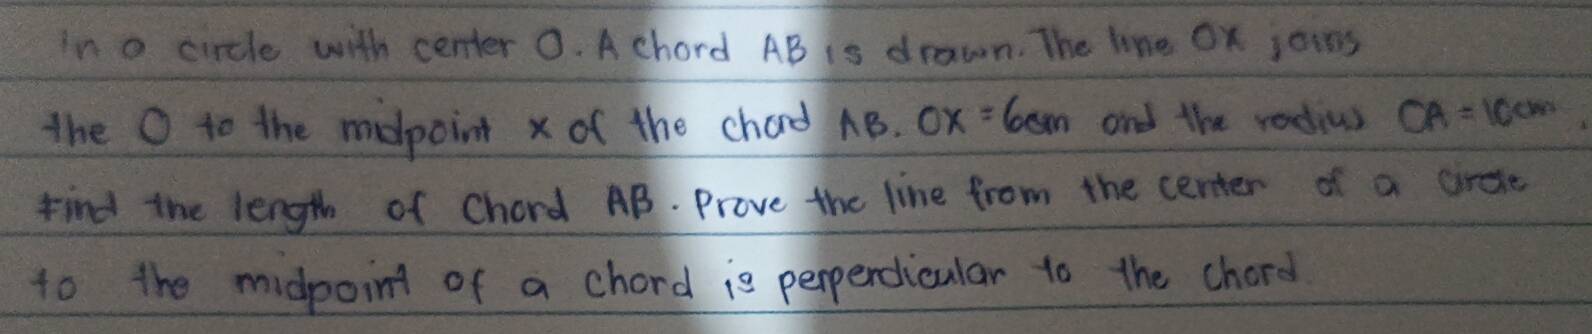 In a circle with center O. A chord AB is drawn. The line OX joins
the O to the midpoint x of the chord AB. OX = 6cm and the radius OA = 10cm.
Find the length of chord AB. Prove the line from the center of a circle
to the midpoint of a chord is perpendicular to the chord.